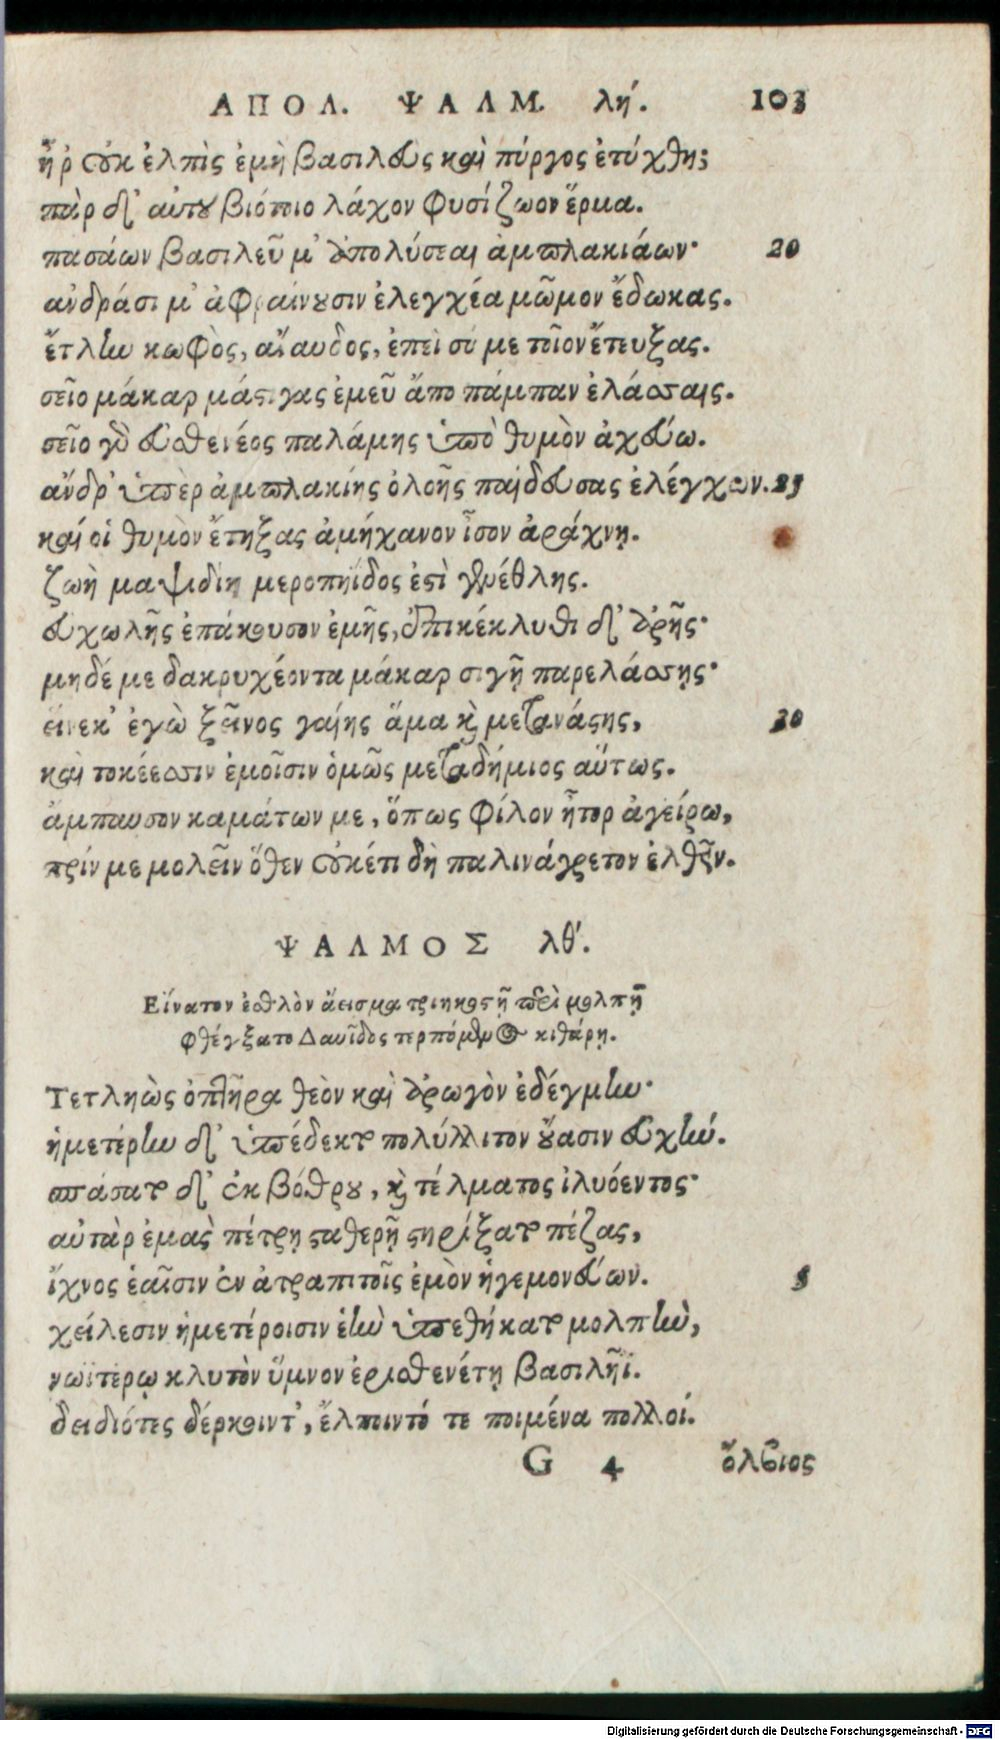 ΑΠΟΛ. ΨΑΛΜ. λή. 103
ἦ ῥ οὐκ ἐλπὶς ἐμὴ βασιλεὺς καὶ πύργος ἐτύχθη;
πὰρ δ' αὐτοῦ βιότοιο λάχον φυσίζωον ἕρμα.
πασάων βασιλεῦ μ' ἀπολύσεαι ἀμπλακιάων· 20
ἀνδράσι μ' ἀφραίνουσιν ἐλεγχέα μῶμον ἔδωκας.
ἔτλην κωφὸς, ἄναυδος, ἐπεὶ σύ με τοῖον ἔτευξας.
σεῖο μάκαρ μάστιγας ἐμεῦ ἄπο πάμπαν ἐλάσσαις.
σεῖο γὸ εὐσθενέος παλάμης ὑπὸ θυμὸν ἀχεύω.
ἄνδρ' ὑπὲρ ἀμπλακίης ὀλοῆς παίδευσας ἐλέγχων. 25
καί οἱ θυμὸν ἔτηξας ἀμήχανον ἶσον ἀράχνῃ.
ζωὴ μαψιδίη μεροπηΐδος ἐστὶ γενέθλης.
εὐχωλῆς ἐπάκουσον ἐμῆς, ἐπικέκλυθι δ' ἀρῆς·
μηδέ με δακρυχέοντα μάκαρ σιγῇ παρελάσσῃς·
εἵνεκ' ἐγὼ ξεῖνος γαίης ἅμα καὶ μετανάστης, 30
καὶ τοκέεσσιν ἐμοῖσιν ὁμῶς μεταδήμιος αὕτως.
ἄμπαυσον καμάτων με, ὅπως φίλον ἦτορ ἀγείρω,
πρίν με μολεῖν ὅθεν οὐκέτι δὴ παλινάγρετον ἐλθεῖν.
ΨΑΛΜΟΣ λθ'.
Εἴνατον ἐσθλὸν ἄεισμα τριηκοστῇ περὶ μολπῇ
Φθέγξατο Δαυῖδος τερπόμενος κιθάρῃ.
Τετληὼς ὀπτῆρα θεὸν καὶ ἀρωγὸν ἐδέγμην·
ἡμετέρην δ' ὑπέδεκτο πολύλλιτον οὔασιν εὐχήν.
σπάσατο δ' ἐκ βόθρου, καὶ τέλματος ἰλυόεντος·
αὐτὰρ ἐμὰς πέτρῃ σταθερῇ στηρίξατο πέζας,
ἴχνος ἑαῖσιν ἐν ἀτραπιτοῖς ἐμὸν ἡγεμονεύων. 5
χείλεσιν ἡμετέροισιν ἑὴν ὑπεθήκατο μολπὴν,
νωϊτέρῳ κλυτὸν ὕμνον ἐρισθενέτῃ βασιλῆϊ.
δειδιότες δέρκοιντ', ἔλποιντό τε ποιμένα πολλοί.
G 4 ὄλβιος
Digitalisierung gefördert durch die Deutsche Forschungsgemeinschaft - DFG